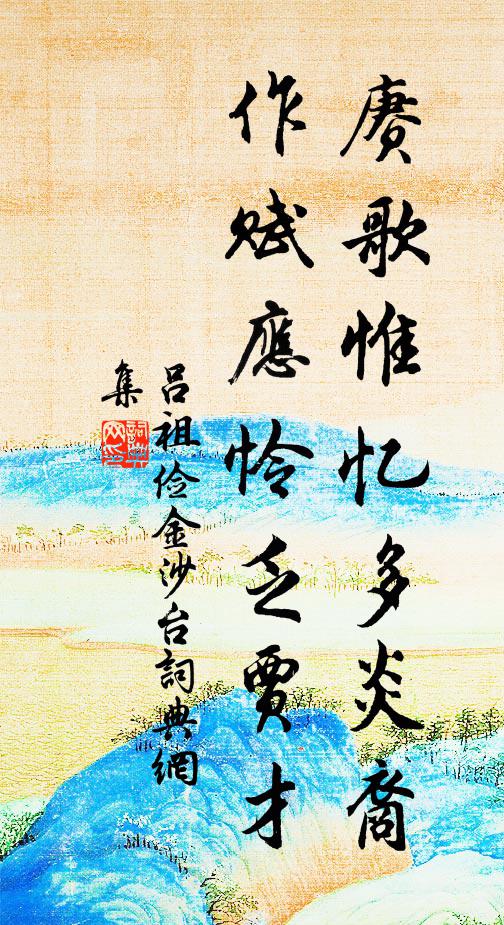 赓歌惟忆多炎裔
作赋應怜乏贾才
吕祖俭金沙台詞典網
集